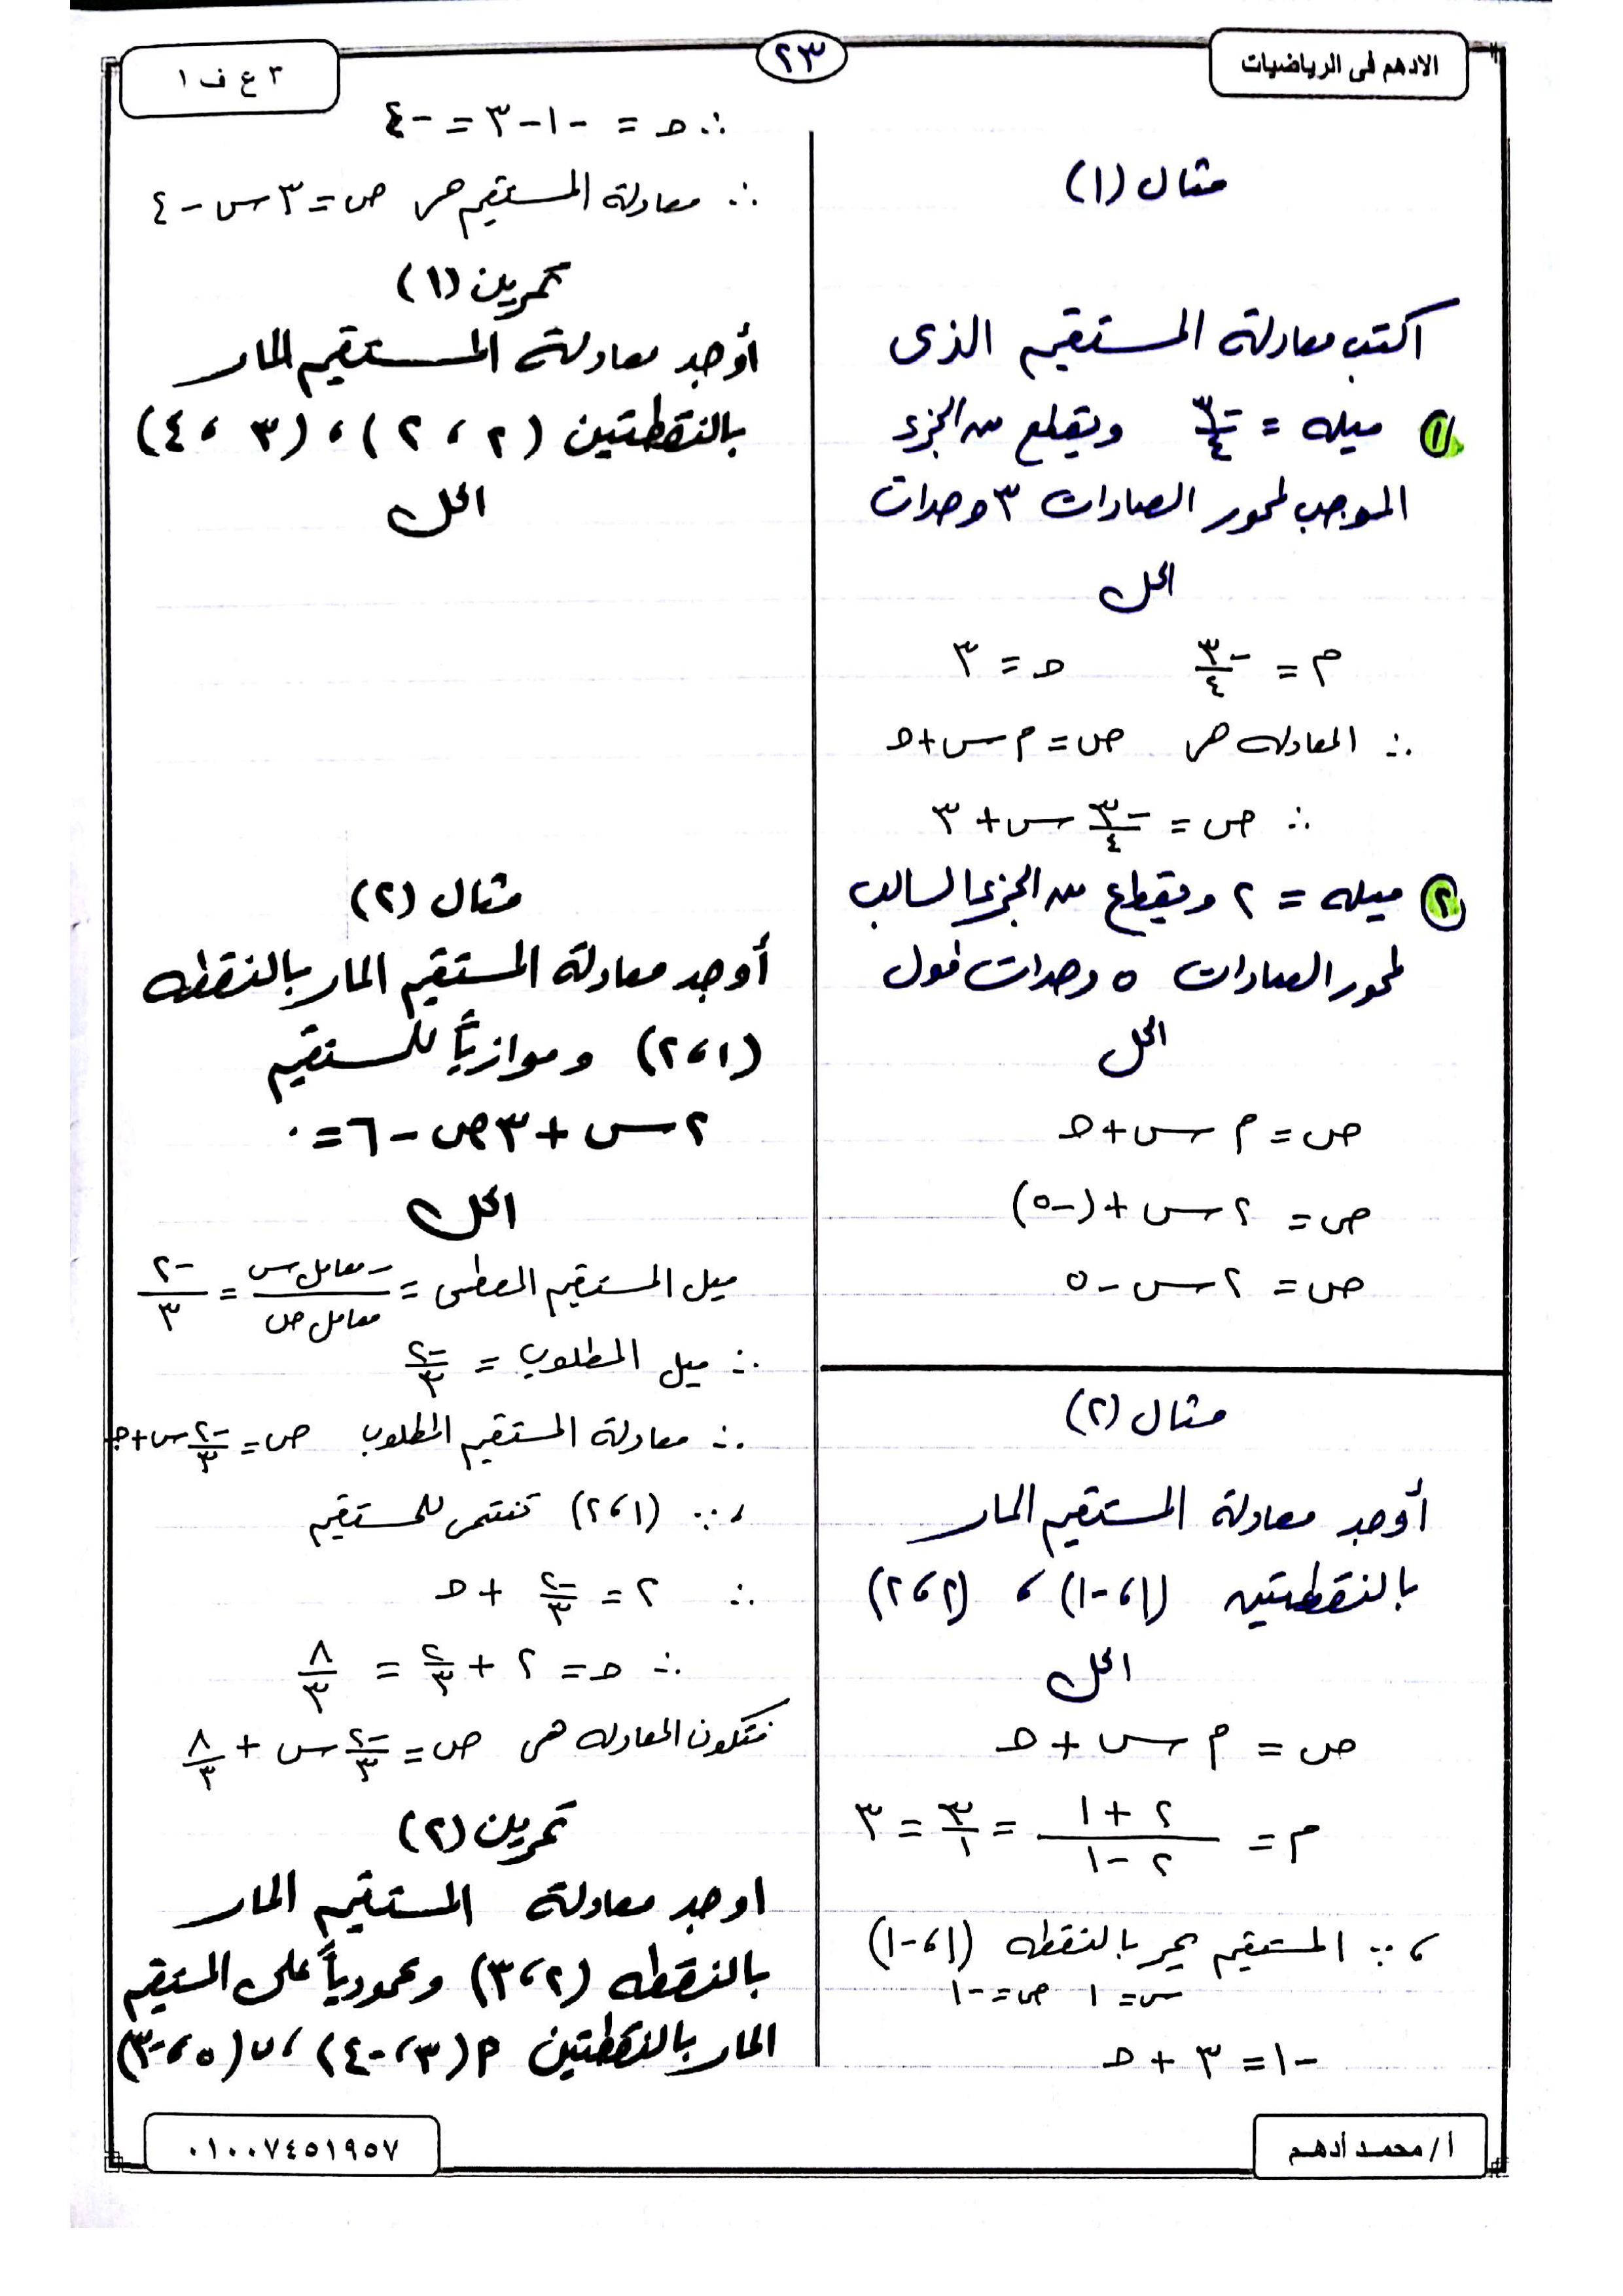 الادهم فى الرياضيات
٢٣
٣ ع ف ١
مثال (١)
اكتب معادلة المستقيم الذى
١ ميله = -٣/٤ ويقطع من الجزء
الموجب لمحور الصادات ٣ وحدات
الحل
م = -٣/٤ حـ = ٣
∴ المعادله هى ص = م س + حـ
∴ ص = -٣/٤ س + ٣
٢ ميله = ٢ ويقطع من الجزء السالب
لمحور الصادات ٥ وحدات طول
الحل
ص = م س + حـ
ص = ٢ س + (-٥)
ص = ٢ س - ٥
مثال (٢)
أوجد معادلة المستقيم المار
بالنقطتين (١ ، -١) ، (٢ ، ٢)
الحل
ص = م س + حـ
م = (٢ + ١)/(٢ - ١) = ٣/١ = ٣
، ∵ المستقيم يمر بالنقطه (١ ، -١)
س = ١ ص = -١
-١ = ٣ + حـ
∴ حـ = -١ - ٣ = -٤
∴ معادلة المستقيم هى ص = ٣ س - ٤
تمرين (١)
أوجد معادلة المستقيم المار
بالنقطتين (٢ ، ٢) ، (٣ ، ٤)
الحل
مثال (٢)
أوجد معادلة المستقيم المار بالنقطه
(١ ، ٢) وموازياً للمستقيم
٢ س + ٣ ص - ٦ = ٠
الحل
ميل المستقيم المعطى = -معامل س/معامل ص = -٢/٣
∴ ميل المطلوب = -٢/٣
∴ معادلة المستقيم المطلوب ص = -٢/٣ س + حـ
، ∵ (١ ، ٢) تنتمى للمستقيم
∴ ٢ = -٢/٣ + حـ
∴ حـ = ٢ + ٢/٣ = ٨/٣
فتكون المعادله هى ص = -٢/٣ س + ٨/٣
تمرين (٢)
اوجد معادلة المستقيم المار
بالنقطه (٢ ، ٣) وعمودياً على المستقيم
المار بالنقطتين م (٣ ، -٤) ، ں (٥ ، -٣)
أ / محمد أدهم
٠١٠٠٧٤٥١٩٥٧